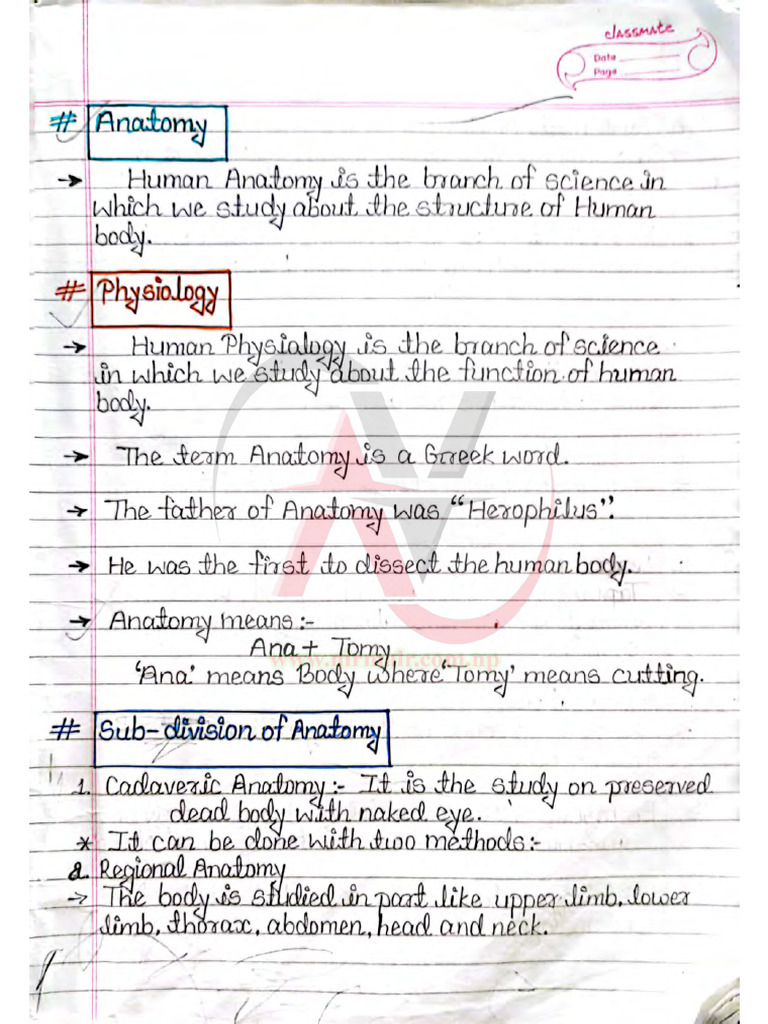 classmate
Date
Page
# Anatomy
→ Human Anatomy is the branch of science in
which we study about the structure of Human
body.
# Physiology
→ Human Physiology is the branch of science
in which we study about the function of human
body.
→ The term Anatomy is a Greek word.
→ The father of Anatomy was "Herophilus".
→ He was the first to dissect the human body.
→ Anatomy means :-
Ana + Tomy
'Ana' means Body where 'Tomy' means cutting.
# Sub-division of Anatomy
1. Cadaveric Anatomy :- It is the study on preserved
dead body with naked eye.
* It can be done with two methods :-
a. Regional Anatomy
→ The body is studied in part like upper limb, lower
limb, thorax, abdomen, head and neck.